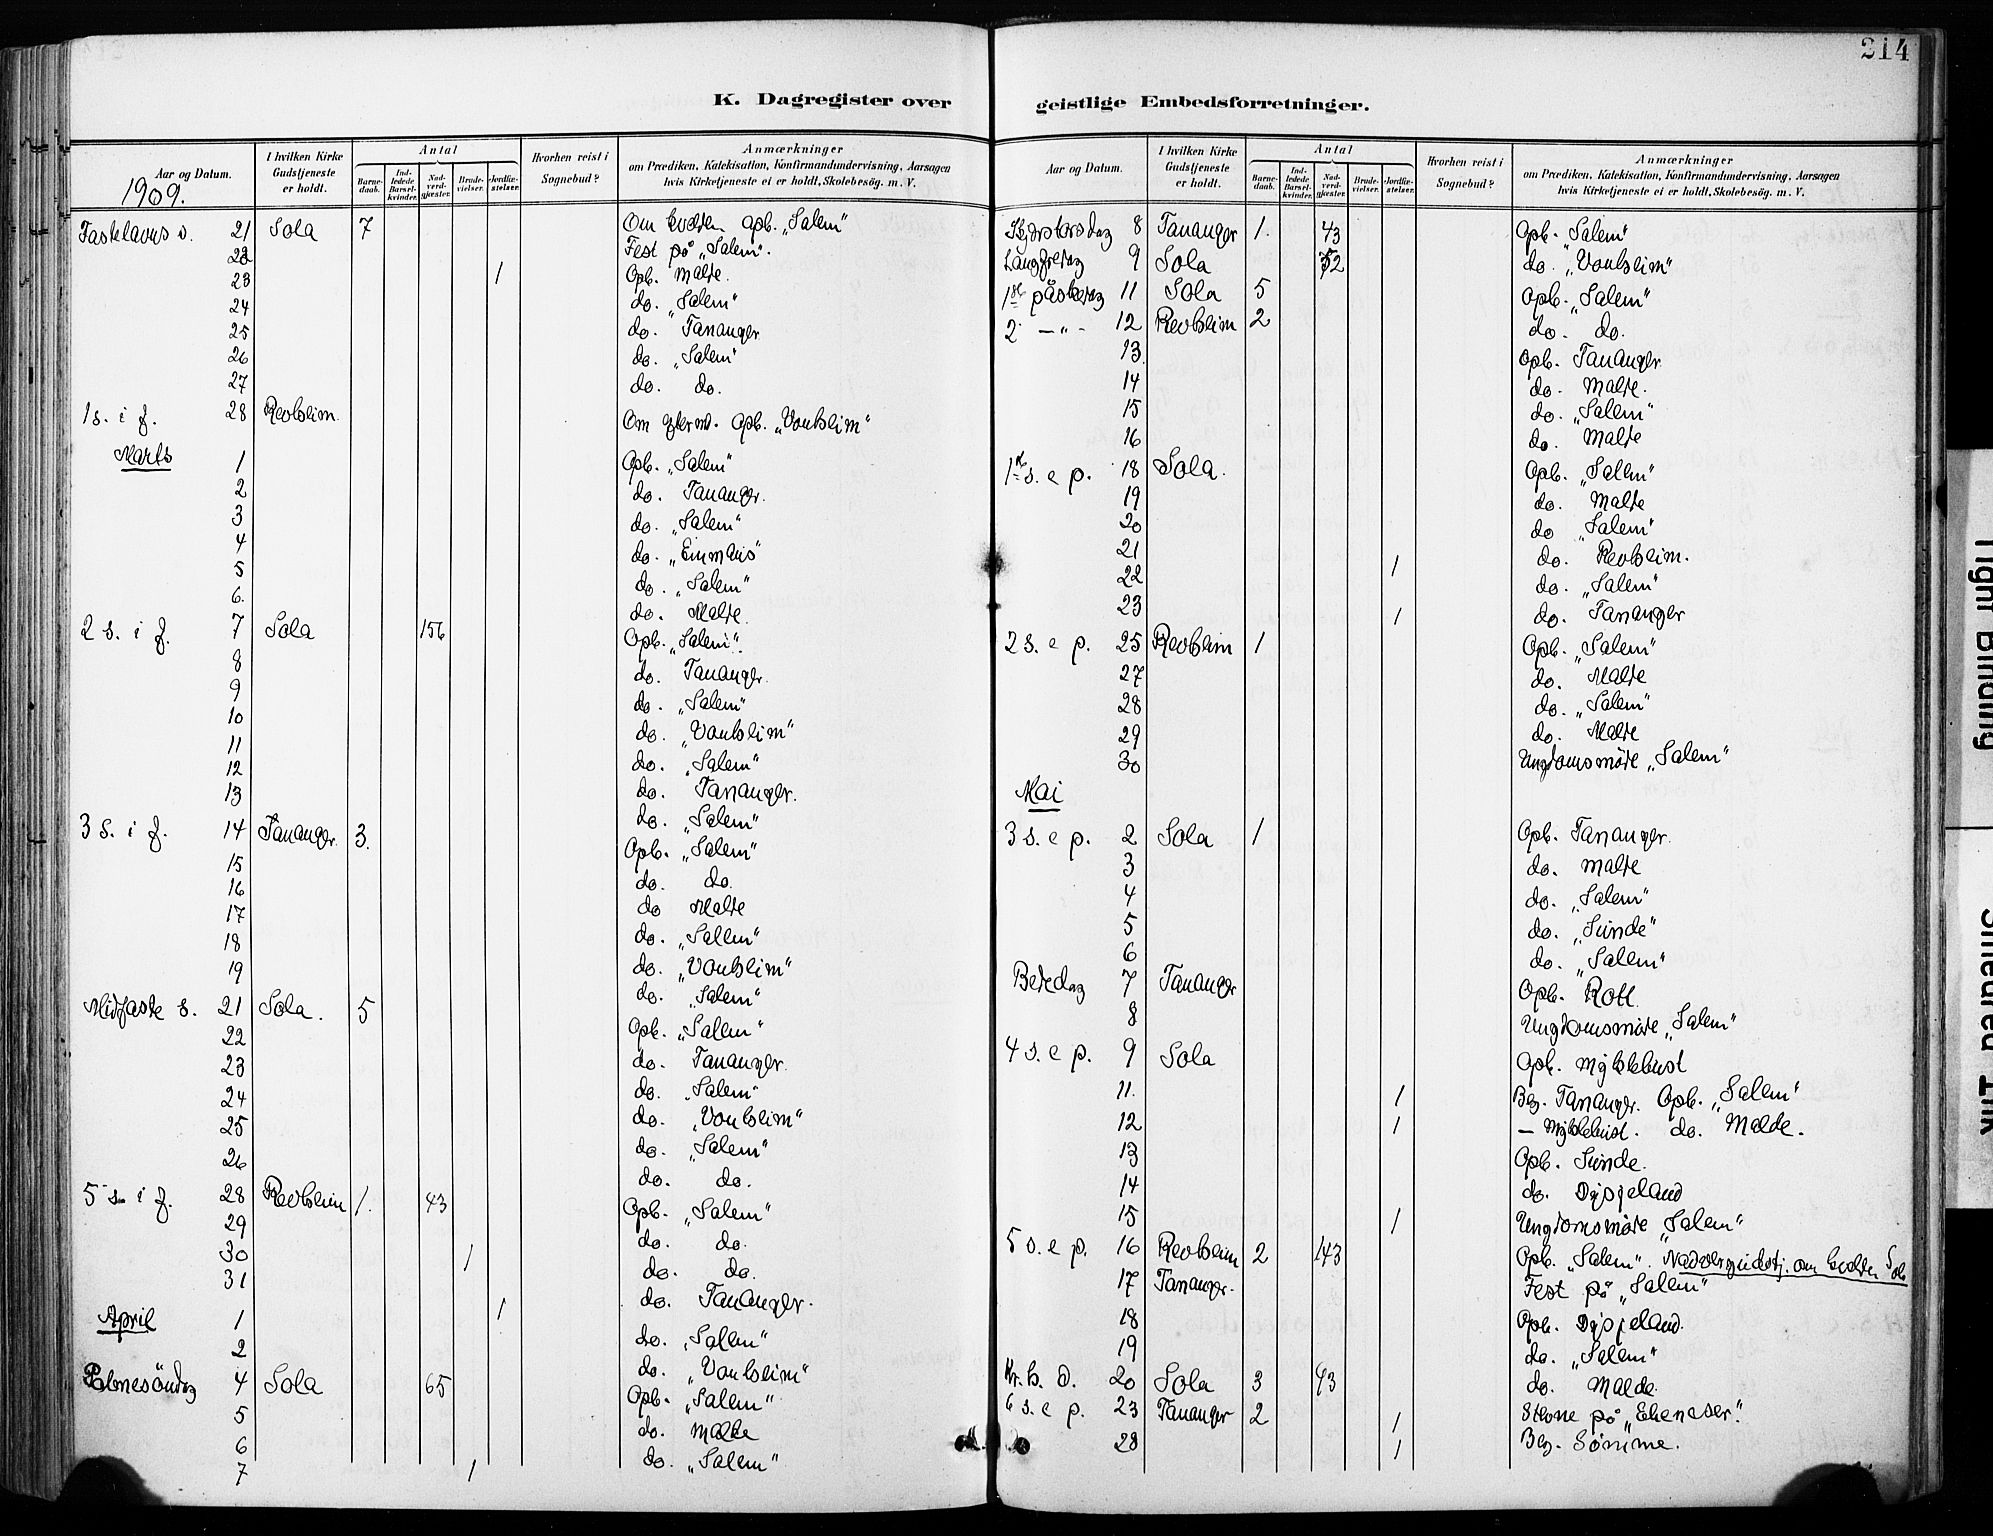 214
K. Dagregister over geistlige Embedsforretninger.
Aar og Datum. I hvilken Kirke Gudstjeneste er holdt. Antal Barnedaab. Indledede Barselkvinder. Nadverdgjæster. Brudevielser. Jordfæstelser. Hvorhen reist i Sognebud? Anmærkninger om Prædiken, Katekisation, Konfirmandundervisning, Aarsagen hvis Kirketjeneste ei er holdt, Skolebesøg. m. V.
1909.
Fastelavns s. 21 Sola 7 Om kvelden Opb. „Salem"
22 Fest på „Salem".
23 1 Opb. Malde.
24 do. „Salem"
25 do. Tananger
26 do. „Salem"
27 do. do.
1 s. i f. 28 Revheim. Om efterm. Opb. „Vonheim"
Marts 1 Opb. „Salem"
2 do. Tananger.
3 do. „Salem"
4 do. „Emmaus"
5 do. „Salem"
6. do. Malde.
2 s. i f. 7 Sola 156 Opb. „Salem".
8 do. Tananger.
9 do. „Salem"
10 do. „Vonheim"
11 do. „Salem"
12 do. Tananger.
13 do. „Salem"
3 s. i f. 14 Tananger 3. Opb. „Salem"
15 do. do.
16 do Malde
17 do. „Salem"
18 do. „Vonheim"
19 do. „Salem"
Midfaste s. 21 Sola. 5 Opb. „Salem"
22 do. Tananger.
23 do. „Salem"
24 do. „Vonheim"
25 do. „Salem"
26 do. do.
5 s. i f. 28 Revheim 1. 43 Opb. „Salem"
29 do. do.
30 1 do. do.
31 do. Tananger.
April 1 1 do. „Salem"
2 do. „Vonheim"
Palmesöndag 4 Sola 65 Opb. „Salem"
5 do. Malde
6 do. „Salem"
7 1
Aar og Datum. I hvilken Kirke Gudstjeneste er holdt. Antal Barnedaab. Indledede Barselkvinder. Nadverdgjæster. Brudevielser. Jordfæstelser. Hvorhen reist i Sognebud? Anmærkninger om Prædiken, Katekisation, Konfirmandundervisning, Aarsagen hvis Kirketjeneste ei er holdt, Skolebesøg. m. V.
Skjærtorsdag 8 Tananger 1. 43 Opb. „Salem"
Langfredag 9 Sola 52 do. „Vonheim"
1ste påskedag 11 Sola 5 Opb. „Salem"
2 — „ - 12 Revheim 2 do. do.
13. Opb. Tananger
14 do. Malde.
15 do. „Salem"
16 do. Malde
1ste s. e p. 18 Sola. Opb. „Salem"
19 do. Malde
20 do „Salem"
21 do. Revheim.
22 1 do. „Salem"
23 1 do. Tananger
2 s. e p. 25 Revheim 1 Opb. „Salem"
27 do. Malde
28 do. „Salem"
29 do. Malde
30 Ungdomsmöte „Salem"
Mai
3 s. e p. 2 Sola 1 Opb. Tananger.
3 do. Malde
4 do. „Salem"
5 do. „Sunde"
6 do. „Salem"
Bededag 7 Tananger Opb. Rott.
8 Ungdomsmöte „Salem"
4 s. e p. 9 Sola Opb. Myklebust
11. 1 Beg. Tananger. Opb. „Salem"
12 1 — Myklebust. do. Malde.
13 Opb. Sunde.
14 do. Dysjeland
15 1 Ungdomsmöte „Salem"
5 s. e p. 16 Revheim 2 143 Opb. „Salem". Nadvergudstj. om kvelden Sola
17 Tananger. Fest på „Salem"
18 Opb. Dysjeland.
19 do. „Salem"
Kr. h. d. 20 Sola 3 43 do. Malde.
6 s. e p. 23 Tananger 2 1 Stevne på „Ebeneser".
28 1 Beg. Sömme.